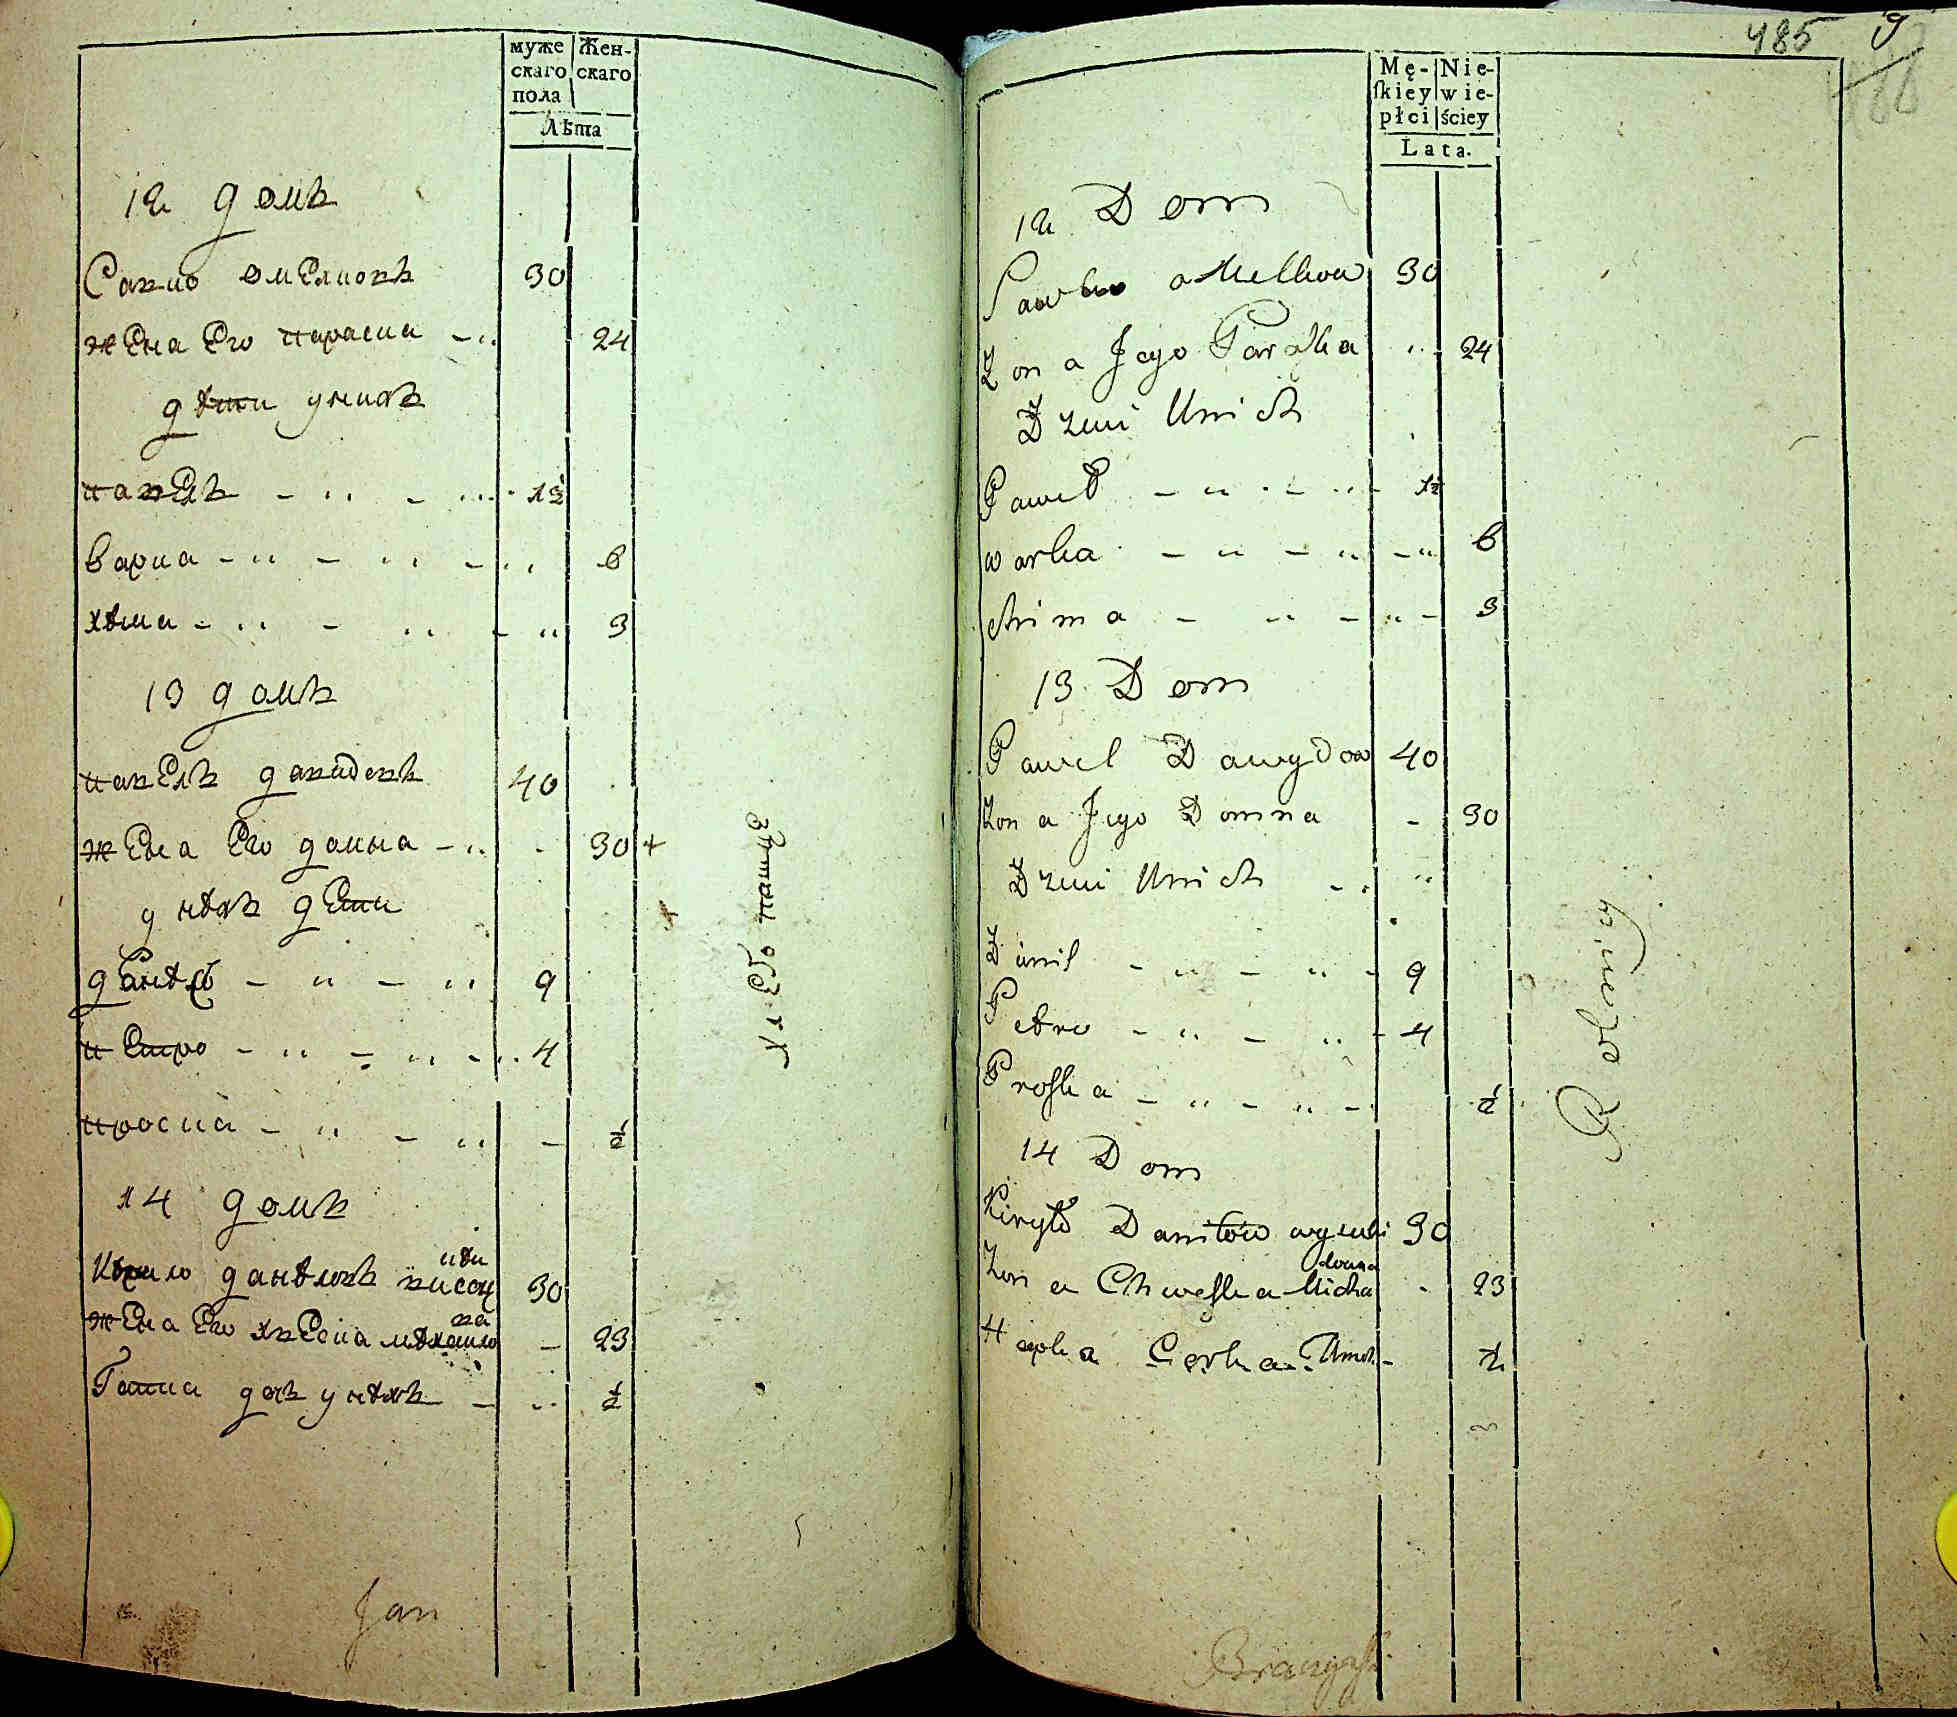 муже
скаго
пола
Жен-
скаго
Лѣта
12 домъ
Савко омелковъ 30
жена Его параска 24
дѣти унихъ
павелъ 1½
варка 6
хѣма 3
13 домъ
павелъ давидовъ 40
жена Его домна 30 +
у нѣхъ дети
данѣло 9
петро 4
проска ½
14 домъ
Кѣрило данѣловъ 30
жена Его хвеска мѣхаилова 23
Гапка дочъ унѣхъ ½
Jan
485 9
Mę-
ſkiey
płci
Nie-
wie-
ściey
Lata.
12 Dom
Sawko omelkow 30
Zona Jego Paraska 24
Dzieci Unich
Paweł 1½
warka 6
chima 3
13 Dom
Pawel Dawydow 40
Zona Jego Domna 30
Dzieci Unich
Danil 9
Petro 4
Proska ½
14 Dom
Kiryło Daniłow 30
Zona Chweska Michałowna 23
Hapka Corka Unich ½